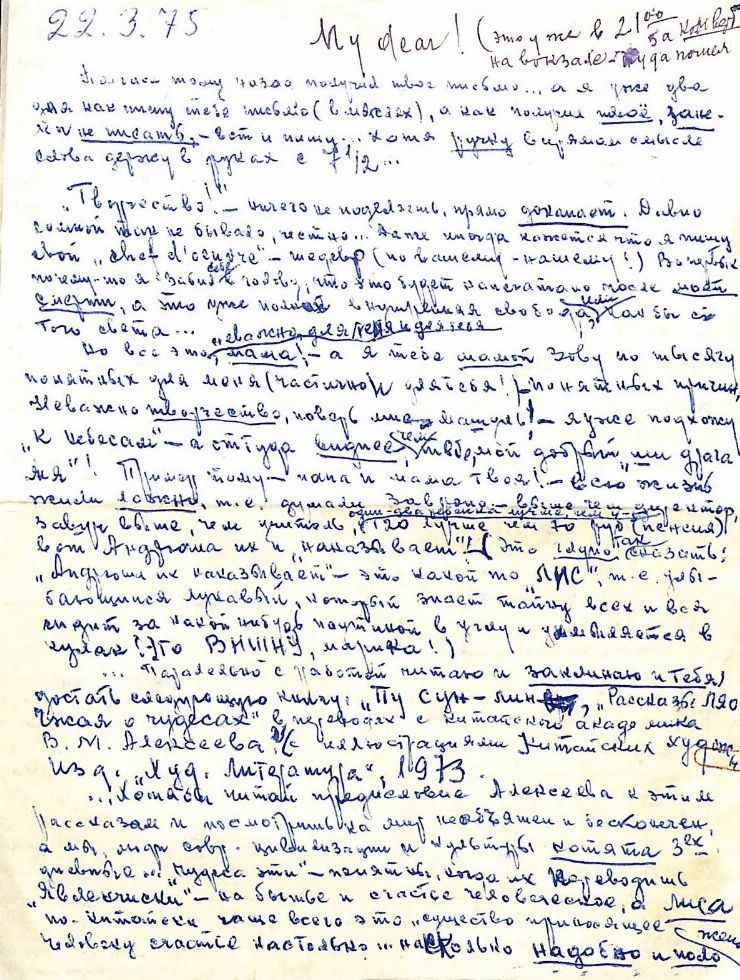 22.3.75
My dear! (это уже в 21⁰⁰ за конверт
на вокзале туда пошел
Полчаса тому назад получил твое письмо... а я уже два
дня как пишу тебе письмо (в мыслях), а как получил твоё,
не писать. – вот и пишу... хотя ручку в прямом смысле
слова держу в руках с 7 1/2...
"Творчество"!.. – ничего не поделаешь, прямо доканает. Давно
со мной так не бывало, честно... Даже иногда кажется что я пишу
свой "chef d'oeuvre" – шедевр (по вашему-нашему!)
почему-то я забил себе в голову, что это будет напечатано после моей
смерти, а это уже полная внутренняя свобода, или как бы с
того света... неважно для меня и для тебя
Но все это, мама! – а я тебе мамой зову по тысячу
понятных для меня (частично и для тебя!) – понятных причин,
Неважно творчество, поверь мне – я уже подхожу
"к небесам" – а оттуда виднее, чем тебе, мой добрый
мя"! Пример тому – папа и мама твоя! – всю жизнь
жили ложно, т.е. думали завроно – выше чем директор,
завуч выше, чем учитель, 120 лучше чем 70 руб (пенсия)
вот Андрюша их и "наказывает"! (Это глупо так сказать:
"Андрюша их наказывает" – это какой то "ЛИС", т.е. улы-
бающийся лукавый, который знает тайну всех и вся
сидит за какой нибудь паутиной в углу и ухмыляется в
кулак! Это ВНИИНУ, марика!)
... Паралельно с работой читаю и заклинаю и Тебя!
достать следующую книгу: "Пу Сун-лин, "Рассказы Ляо
Чжая о чудесах" в переводах с китайского академика
В. М. Алексеева (с иллюстрациями китайских худож-
Изд. "Худ. Литература", 1973.
... Хотя бы читай предисловие Алексеева к этим
рассказам и посмотришь на мир необъятен и бесконечен,
а мы, люди совр. цивилизации и культуры котята 3ех
дневные... "чудеса эти" – понятны, когда их переводишь
на бытье и счастье человеческое, а лиса
по-китайски чаще всего это "существо приносящее
человеку счастье настолько... насколько надобно и поло